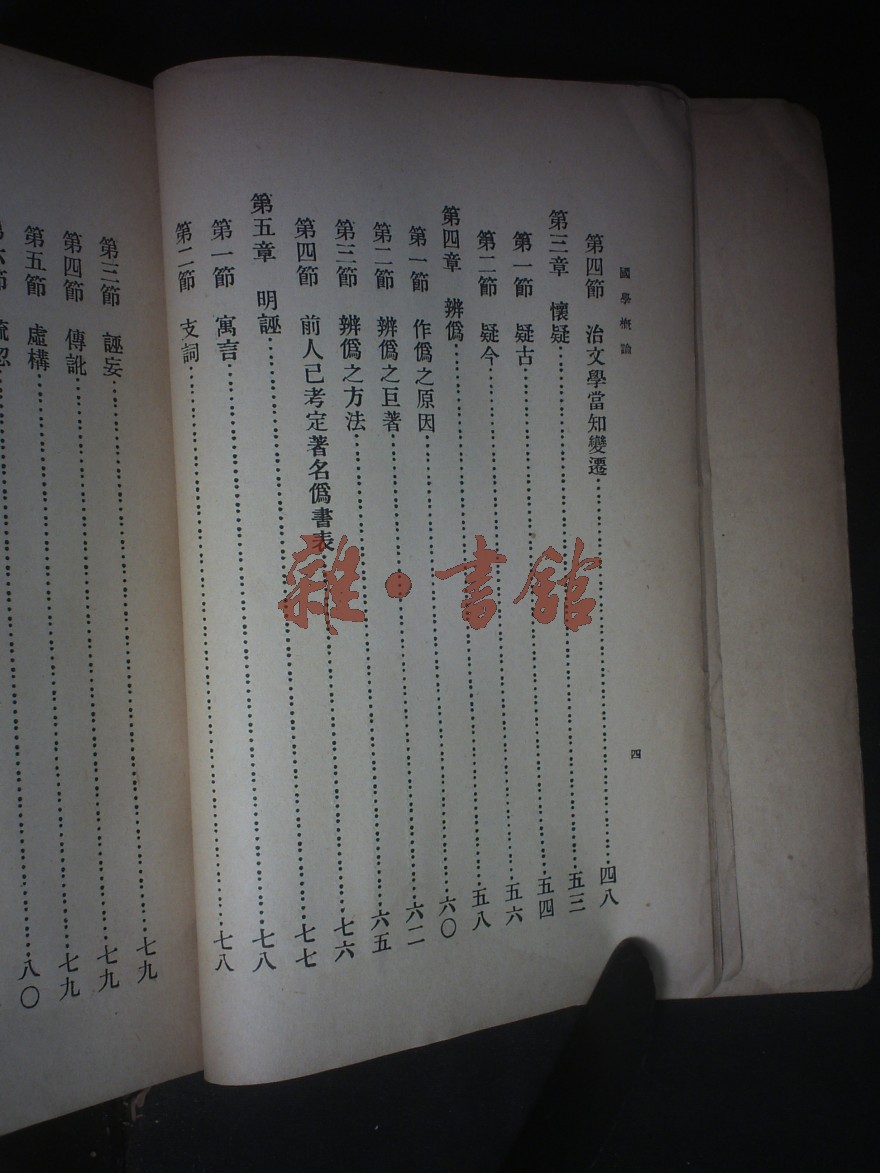 國學概論
四
第四節　治文學當知變遷……四八
第三章　懷疑……五三
第一節　疑古……五四
第二節　疑今……五六
第四章　辨僞……五八
第一節　作僞之原因……六〇
第二節　辨僞之巨著……六二
第三節　辨僞之方法……六五
第四節　前人已考定著名僞書表……七六
第五章　明誣……七七
第一節　寓言……七八
第二節　支詞……七八
第三節　誣妄……七九
第四節　傳訛……七九
第五節　虛構……七九
第六節……八〇
雜·書館